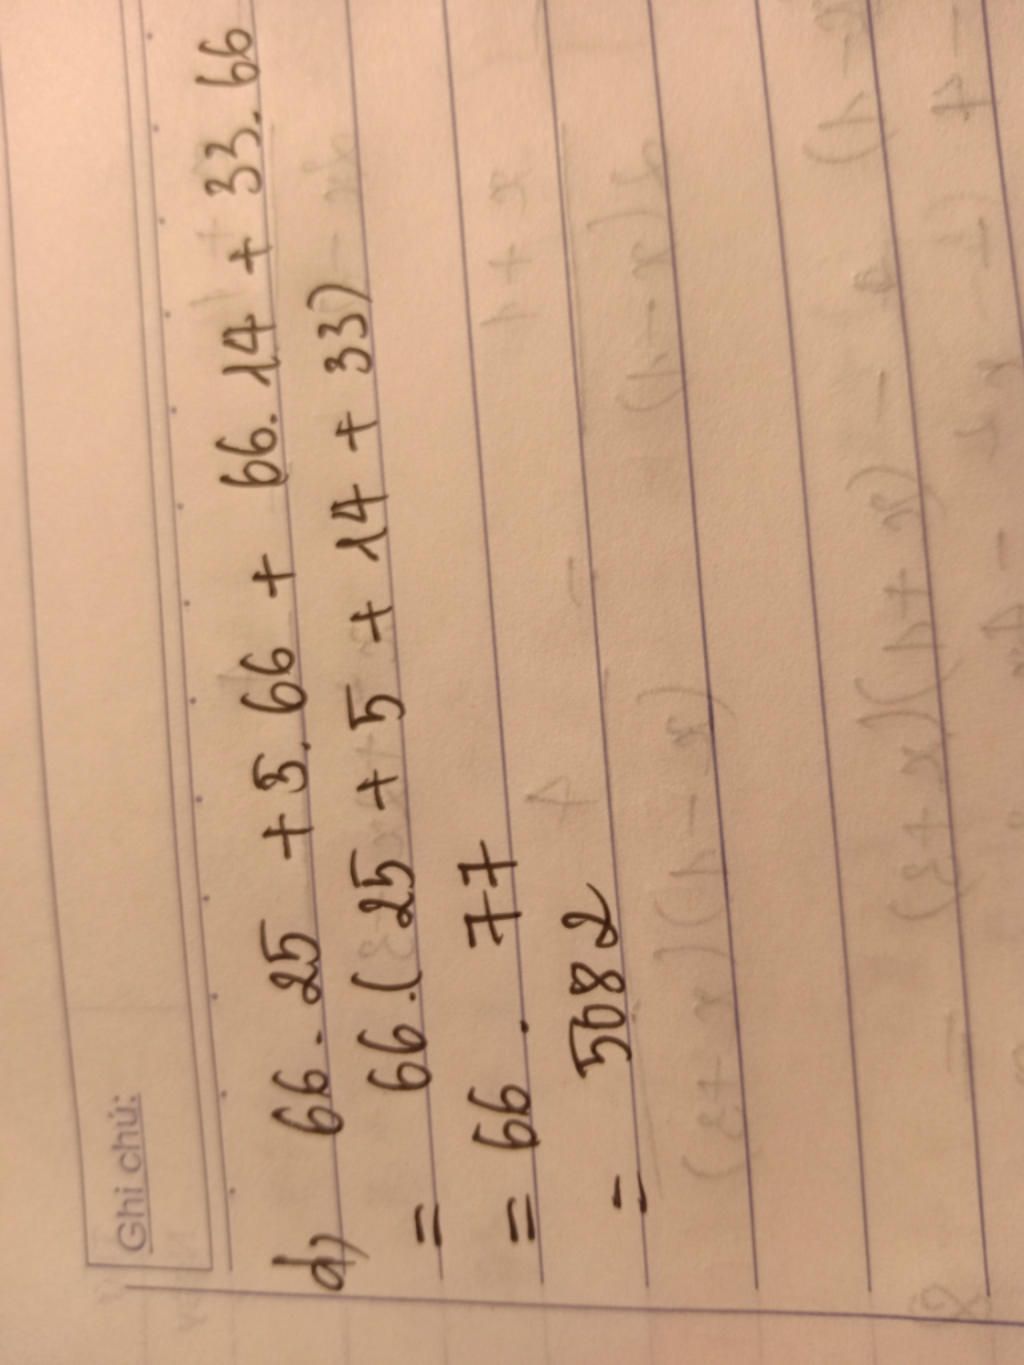 Ghi chú:
d) 66.25 + 5.66 + 66.14 + 33.66
= 66.(25 + 5 + 14 + 33)
= 66 . 77
= 5082